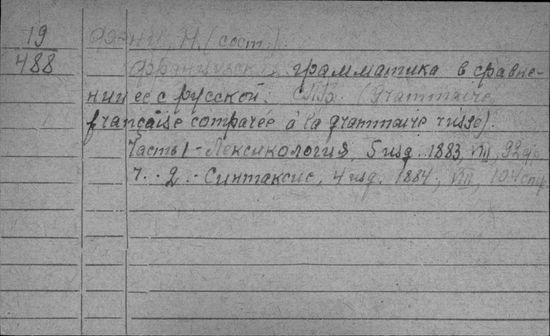 19
488
Фэнни, Н. (сост.).
Французская грамматика в сравне-
нии ее с русской. СПБ. Grammaire
française comparée à la grammaire russe).
Часть 1 - Лексикология, 5 изд. 1883, VIII, 92 стр.
Ч. - 2. - Синтаксис, 4 изд. 1884, VIII, 104 стр.